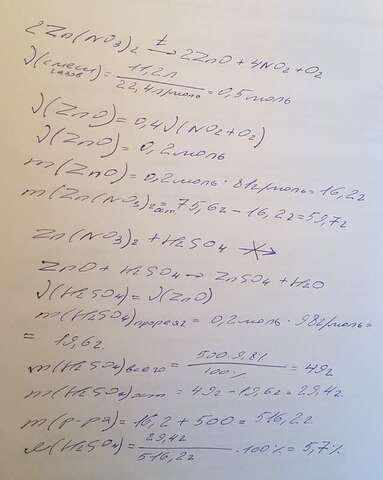 2Zn(NO3)2 t→ 2ZnO + 4NO2 + O2
ν(смеси газов) = 11,2л / 22,4л/моль = 0,5моль
ν(ZnO) = 0,4ν(NO2+O2)
ν(ZnO) = 0,2моль
m(ZnO) = 0,2моль · 81г/моль = 16,2г
m(Zn(NO3)2)ост = 75,6г - 16,2г = 59,7г
Zn(NO3)2 + H2SO4 ↛
ZnO + H2SO4 → ZnSO4 + H2O
ν(H2SO4) = ν(ZnO)
m(H2SO4)прореаг = 0,2моль · 98г/моль =
= 19,6г
m(H2SO4)всего = 500·9,8% / 100% = 49г
m(H2SO4)ост = 49г - 19,6г = 29,4г
m(р-ра) = 16,2 + 500 = 516,2г
ω(H2SO4) = 29,4г / 516,2г · 100% = 5,7%